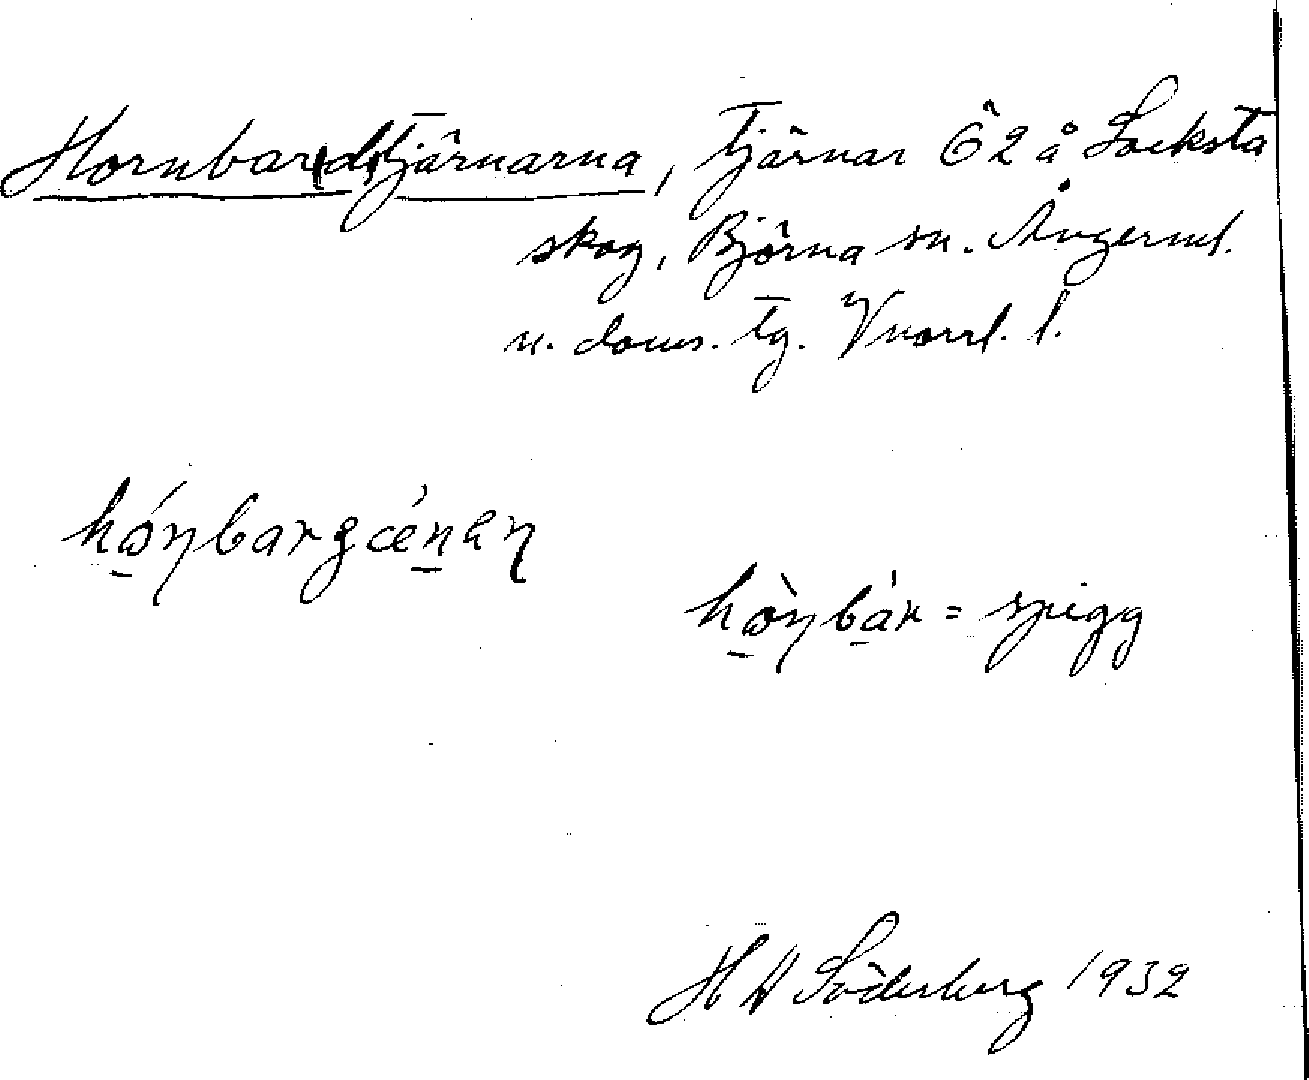 Hornbar(ds)tjärnarna, tjärnar 62 å Locksta
skog, Björna sn. Ångerml.
n. doms. tg. Vnorrl. l.
hó̱ŋbargcéṉaŋ
hò̱ŋbá̱r = spigg
H W Söderberg 1932